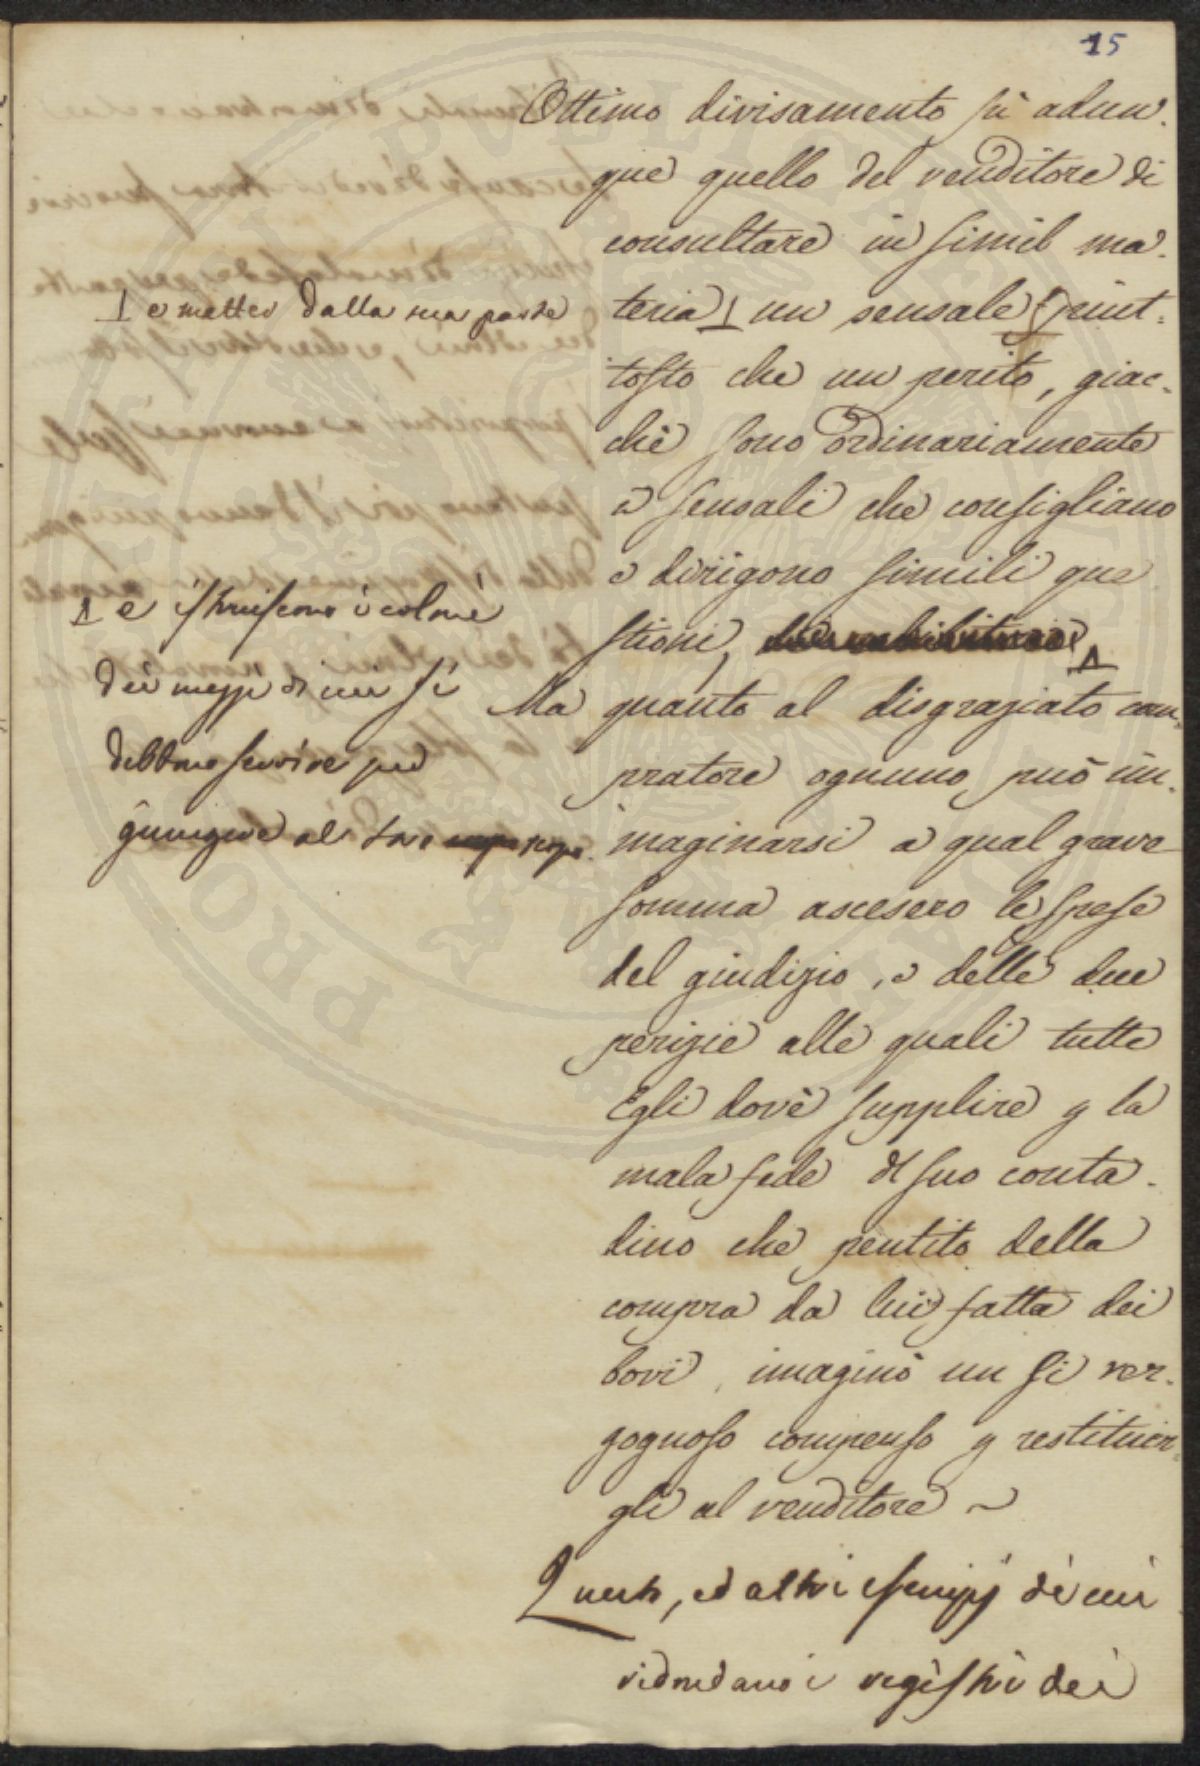 15
Ottimo divisamento fù adun-
que quello del venditore di
consultare in simil ma-
teria un sensale piut-
tosto che un perito, giac-
chè sono ordinariamente
i sensali che consigliano
e dirigono simili que
stioni,
Ma quanto al disgraziato com-
pratore ognuno può im-
maginarsi a qual grave
somma ascesero le spese
del giudizio, e delle due
perizie alle quali tutte
Egli dovè supplire p la
mala fede del suo conta-
dino che pentito della
compra da lui fatta dei
bovi, imaginò un si ver-
gognoso compenso p restituir-
gli al venditore ~
Questo, ed altri esempj di cui
ridondano i registri dei
e metter dalla sua parte
e istruiscono i coloni
dei mezzi di cui si
debbono servire per
giungere al loro scopo.
PROPRIETAS PUBLICA